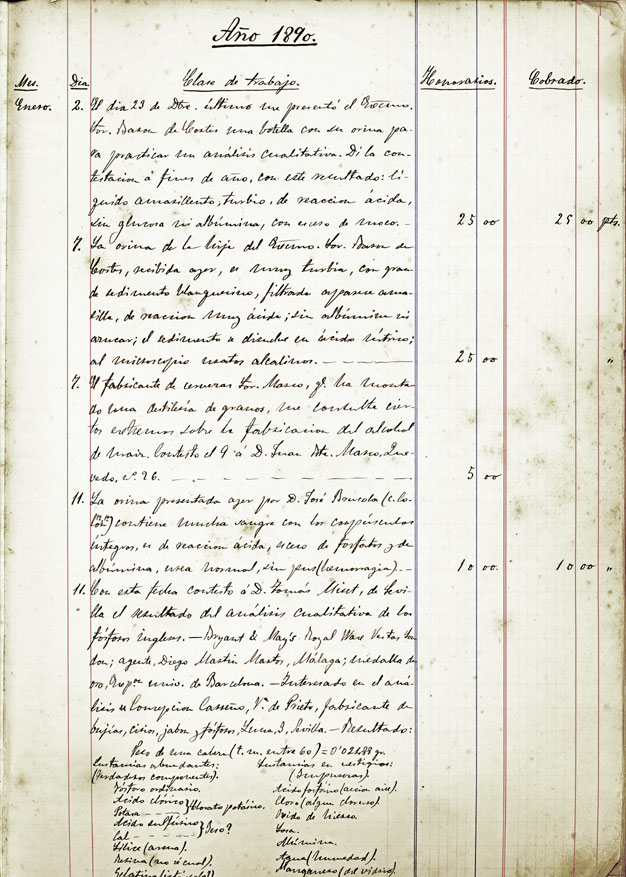 Año 1890.
Mes. Dia Clase de trabajo. Honorarios. Cobrado.
Enero. 2. El dia 23 de Dbre. último me presentó el Excmo.
Sor. Baron de Cortes una botella con su orina pa-
ra practicar un análisis cualitativa. Di la con-
testacion á fines de año, con este resultado: lí-
quido amarillento, turbio, de reaccion ácida,
sin glucosa ni albúmina, con esceso de moco. - 25 00 25 00 pts.
7. La orina de la hija del Excmo. Sor. Baron de
Cortes, recibida ayer, es muy turbia, con gran-
de sedimento blanquecino, filtrada aparece ama-
rilla, de reaccion muy ácida; sin albúmina ni
azucar; el sedimento se disuelve en ácido nítrico;
al microscopio uratos alcalinos. 25 00 "
7. El fabricante de cervezas Sor. Maseo, qe. ha monta-
do una destilería de granos, me consulta cier-
tos estremos sobre la fabricacion del alcohol
de maiz. Contesto el 9 á D. Juan Bta. Maseo, Que-
vedo, nº. 26. 5 00
11. La orina presentada ayer por D. José Brusola (c. Co-
lon) contiene mucha sangre con los corpúsculos
íntegros, es de reaccion ácida, esceso de fosfatos y de
albúmina, urea normal, sin pus (hemorragia). - 10 00. 10 00 "
11. Con esta fecha contesto á D. Tomás, de Sevi-
lla el resultado del análisis cualitativa de los
fósforos ingleses. — Bryant & May's Royal Wax Vestas, Lon-
don; agente, Diego Martin Martos, Málaga; medalla de
oro, Espon. univ. de Barcelona. — Interesado en el aná-
lisis es Concepcion Carreño, Va. de Prieto, fabricante de
bujías, cirios, jabon y fósforos, Lerena, 3, Sevilla. — Resultado:
Peso de una cabeza (t. m. entre 60) = 0'02488 gr.
Sustancias abundantes: Sustancias en vestigios:
(Verdaderos componentes). (Impurezas).
Fósforo ordinario. Acido fosfórico (accion aire).
Acido clórico Cloro (algun cloruro).
Potasa } Clorato potásico. Oxido de hierro.
Acido sulfúrico Sosa.
Cal } Yeso? Alúmina.
Sílice (arena). Agua (humedad).
Resina (no es cual). Manganeso (del vidrio).
Gelatina